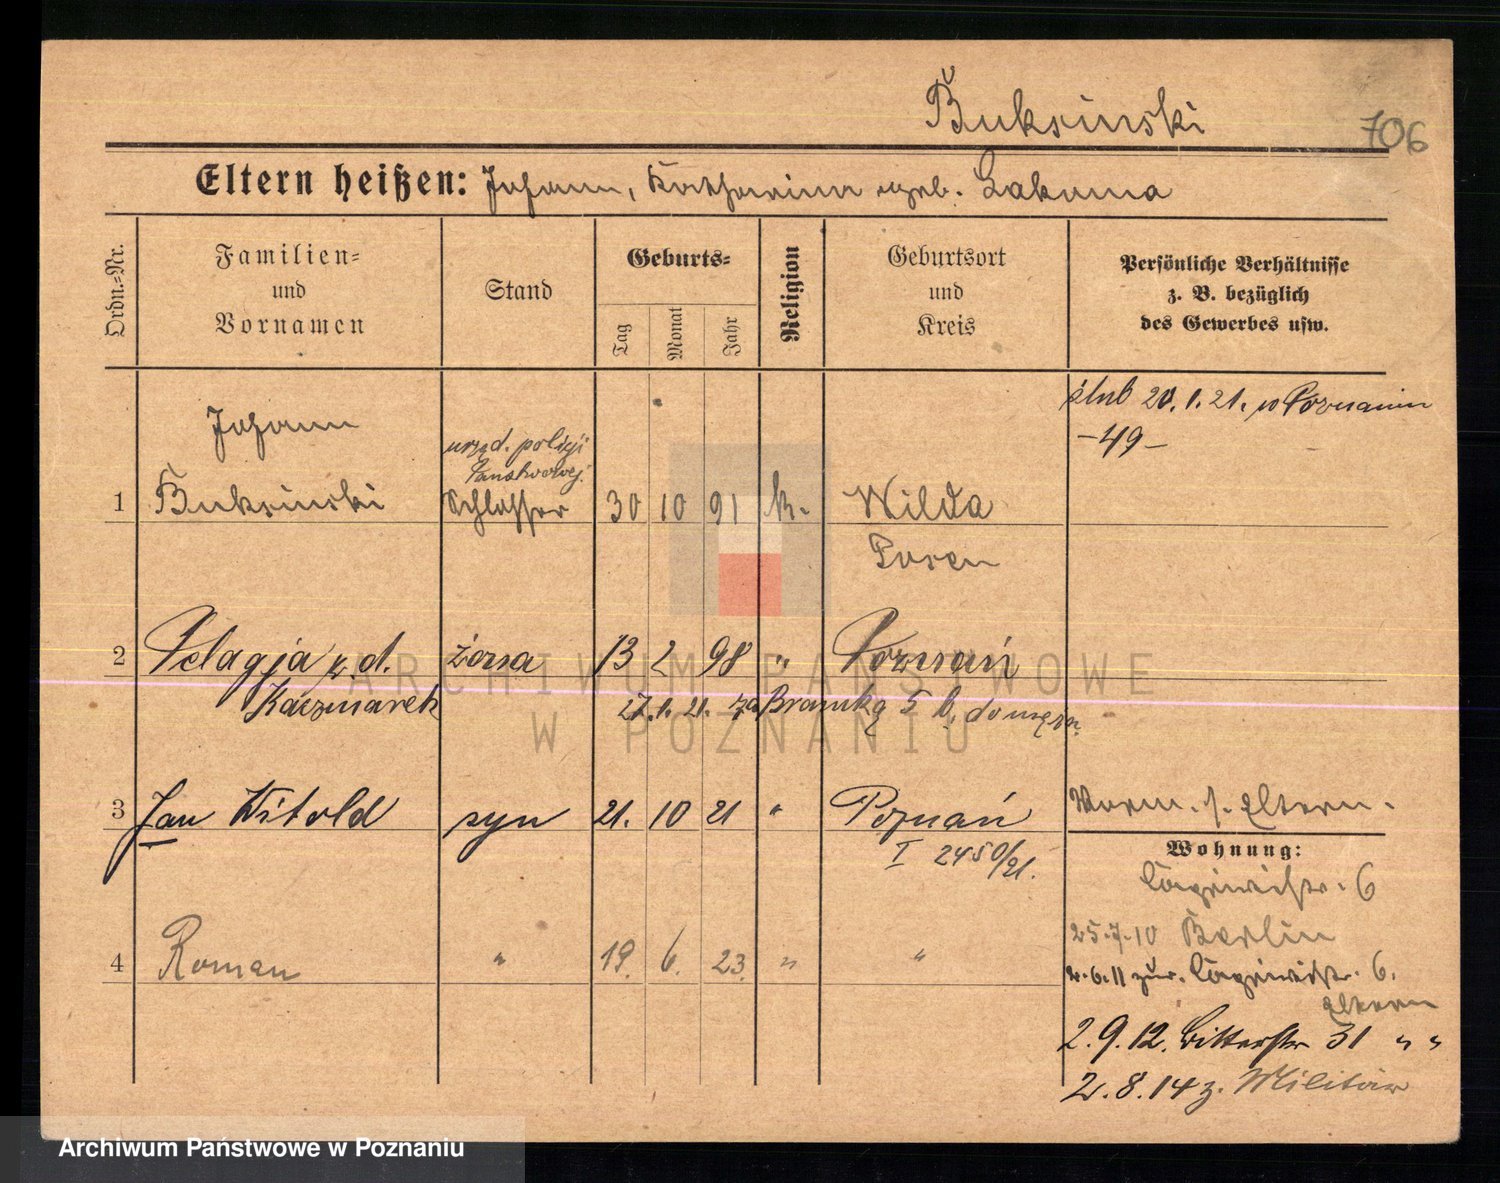 Buksinski
706
Eltern heißen: Johann, Katharina geb. Lakoma
Ordn.-Nr.
Familien- und Vornamen
Stand
Geburts-
Tag
Monat
Jahr
Religion
Geburtsort und Kreis
Persönliche Verhältnisse z. B. bezüglich des Gewerbes usw.
ślub 20.1.21. w Poznaniu
-49-
Johann
urzęd. policji
Państwowej.
1 Buksinski Schlosser 30 10 91 k. Wilda
Posen
2 Pelagja z. d. żona 13 2 98 " Poznań
Kaczmarek 27.1.21. za Bramką 5 b. do męża.
3 Jan Witold syn 21. 10 21 " Poznań
I 2450/21.
Vorm. s. Eltern.
Wohnung:
6
4 Roman " 19. 6. 23. " "
25.7.10 Berlin
2.6.11 zur. 6.
Eltern
2.9.12. Bitterstr 31 " "
2.8.14 z. Militär
ARCHIWUM PAŃSTWOWE
W POZNANIU
Archiwum Państwowe w Poznaniu